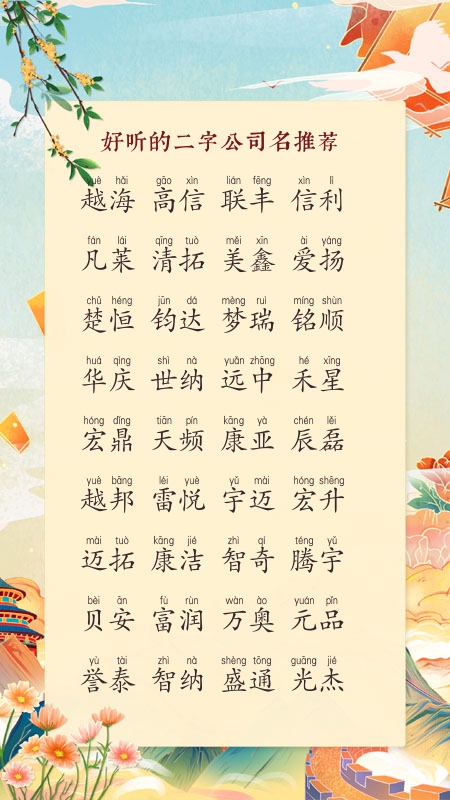 好听的二字公司名推荐
yuè hǎi gāo xìn lián fēng xìn lì
越海 高信 联丰 信利
fán lái qīng tuò měi xīn ài yáng
凡莱 清拓 美鑫 爱扬
chǔ héng jūn dá mèng ruì míng shùn
楚恒 钧达 梦瑞 铭顺
huá qìng shì nà yuǎn zhōng hé xīng
华庆 世纳 远中 禾星
hóng dǐng tiān pín kāng yà chén lěi
宏鼎 天频 康亚 辰磊
yuè bāng léi yuè yǔ mài hóng shēng
越邦 雷悦 宇迈 宏升
mài tuò kāng jié zhì qí téng yǔ
迈拓 康洁 智奇 腾宇
bèi ān fù rùn wàn ào yuán pǐn
贝安 富润 万奥 元品
yù tài zhì nà shèng tōng guāng jié
誉泰 智纳 盛通 光杰